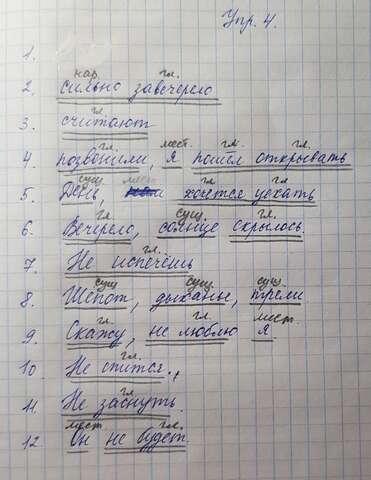 Упр. 4.
1.
нар. гл.
2. сильно завечерело
гл.
3. считают
гл. мест. гл. гл.
4. позвонили, я пошел открывать
сущ. мест. гл. гл.
5. День, хочется уехать
гл. сущ. гл.
6. Вечерело, солнце скрылось.
гл.
7. Не испечёшь
сущ. сущ. сущ.
8. Шепот, дыханье, трели
гл. гл. мест.
9. Скажу, не люблю я
гл.
10. Не спится.,
гл.
11. Не заснуть.
мест. гл.
12. Он не будет